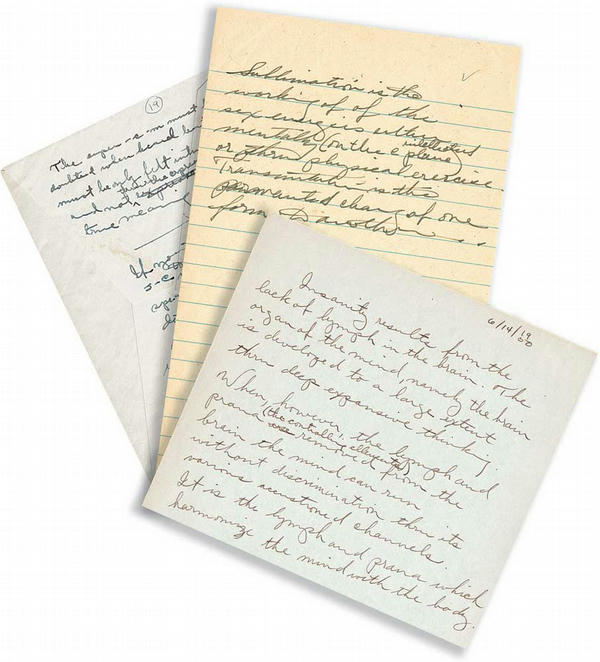 19
The super-s-m must
doubted when bared
must be only felt
and not
true meaning
If you
J-C.
Sublimation is the
working of of the
sex energies either
intellected
mentally (on the plane)
or thru physical exercise.
Transmutation is the
permanted change of one
form to another...
6/14/19
00
Insanity results from the
lack of lymph in the brain. The
organ of the mind, namely the brain
is developed to a large extent
thru deep expansive thinking.
When, however, the lymph and
prana (the controlling ellements)
are removed from the
brain the mind can run
without discrimination thru its
various accustomed channels.
It is the lymph and prana which
harmonize the mind with the body.